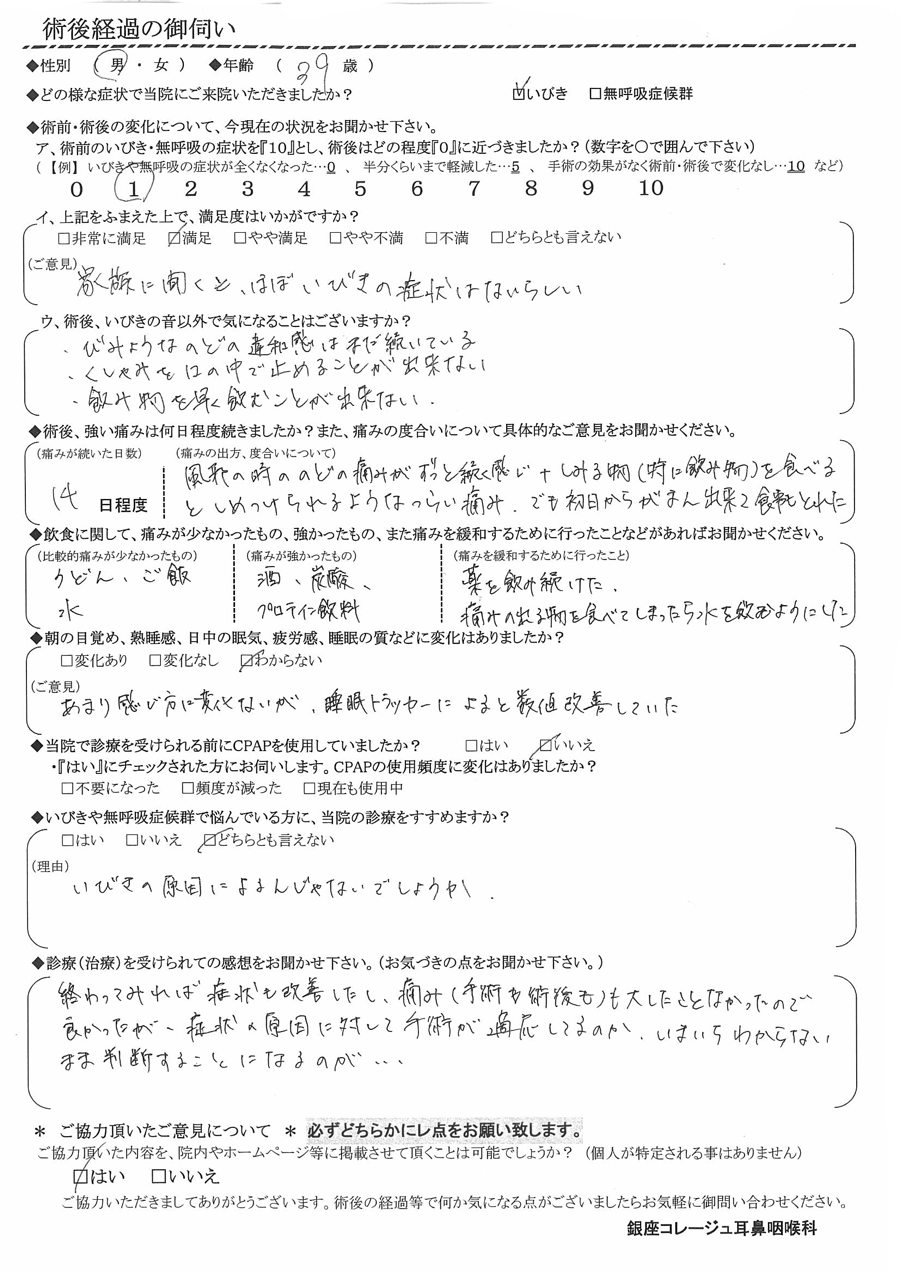 術後経過の御伺い
◆性別 （ 男 ・ 女 ） ◆年齢 （ 39 歳 ）
◆どの様な症状で当院にご来院いただきましたか？ ☑いびき □無呼吸症候群
◆術前・術後の変化について、今現在の状況をお聞かせ下さい。
ア、術前のいびき・無呼吸の症状を『10』とし、術後はどの程度『0』に近づきましたか？（数字を○で囲んで下さい）
（【例】いびきや無呼吸の症状が全くなくなった…0 、 半分くらいまで軽減した…5 、 手術の効果がなく術前・術後で変化なし…10 など）
0 1 2 3 4 5 6 7 8 9 10
イ、上記をふまえた上で、満足度はいかがですか？
□非常に満足 ☑満足 □やや満足 □やや不満 □不満 □どちらとも言えない
（ご意見）
家族に聞くと、ほぼいびきの症状はないらしい
ウ、術後、いびきの音以外で気になることはございますか？
・びみょうなのどの違和感は未だ続いている
・くしゃみを口の中で止めることが出来ない
・飲み物を早く飲むことが出来ない.
◆術後、強い痛みは何日程度続きましたか？また、痛みの度合いについて具体的なご意見をお聞かせください。
（痛みが続いた日数） （痛みの出方、度合いについて）
14 日程度
風邪の時ののどの痛みがずっと続く感じ + しみる物(特に飲み物)を食べる
としめつけられるようなつらい痛み. でも初日からがまん出来て食事もとれた
◆飲食に関して、痛みが少なかったもの、強かったもの、また痛みを緩和するために行ったことなどがあればお聞かせください。
（比較的痛みが少なかったもの） （痛みが強かったもの） （痛みを緩和するために行ったこと）
うどん、ご飯 酒、炭酸、 薬を飲み続けた.
水 プロテイン飲料 痛みの出る物を食べてしまったら水を飲むようにした
◆朝の目覚め、熟睡感、日中の眠気、疲労感、睡眠の質などに変化はありましたか？
□変化あり □変化なし ☑わからない
（ご意見）
あまり感じ方に変化ないが、睡眠トラッカーによると数値改善していた
◆当院で診療を受けられる前にCPAPを使用していましたか？ □はい ☑いいえ
・『はい』にチェックされた方にお伺いします。CPAPの使用頻度に変化はありましたか？
□不要になった □頻度が減った □現在も使用中
◆いびきや無呼吸症候群で悩んでいる方に、当院の診療をすすめますか？
□はい □いいえ ☑どちらとも言えない
（理由）
いびきの原因によるんじゃないでしょうか.
◆診療（治療）を受けられての感想をお聞かせ下さい。（お気づきの点をお聞かせ下さい。）
終わってみれば症状も改善したし、痛み(手術も術後も)も大したことなかったので
良かったが、症状の原因に対して手術が適応してるのか、いまいちわからない
まま判断することになるのが…
＊ ご協力頂いたご意見について ＊ 必ずどちらかにレ点をお願い致します。
ご協力頂いた内容を、院内やホームページ等に掲載させて頂くことは可能でしょうか？（個人が特定される事はありません）
☑はい □いいえ
ご協力いただきましてありがとうございます。術後の経過等で何か気になる点がございましたらお気軽に御問い合わせください。
銀座コレージュ耳鼻咽喉科